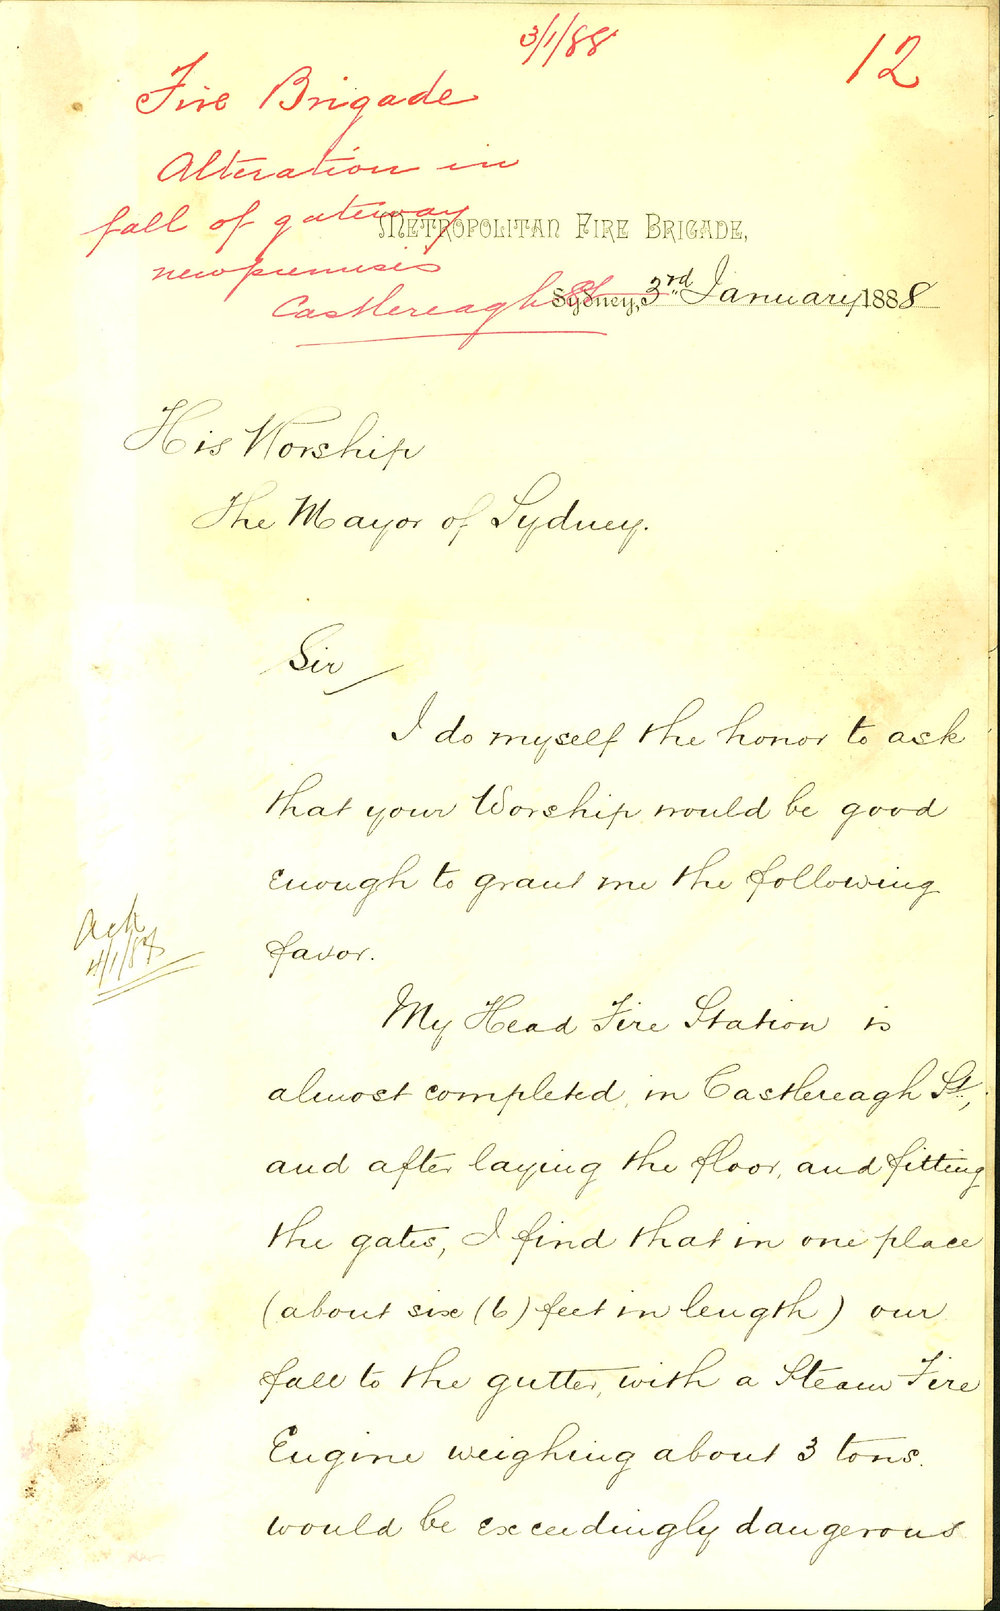 3/1/88
12
Fire Brigade
Alteration in
fall of gateway
new premises
Castlereagh St
METROPOLITAN FIRE BRIGADE,
Sydney, 3rd January 1888
His Worship
The Mayor of Sydney.
Sir
I do myself the honor to ask
that your Worship would be good
enough to grant me the following
favor.
Ack
4/1/88
My Head Fire Station is
almost completed, in Castlereagh St.,
and after laying the floor, and fitting
the gates, I find that in one place
(about six (6) feet in length) our
fall to the gutter, with a Steam Fire
Engine weighing about 3 tons.
would be exceedingly dangerous